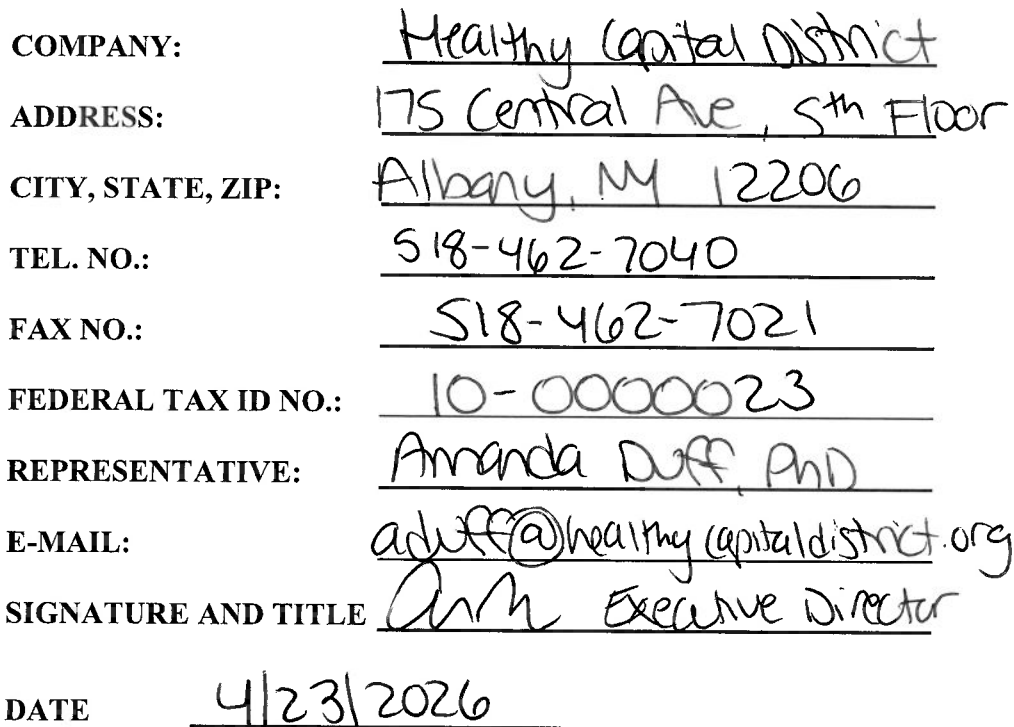 COMPANY: Healthy Capital District
ADDRESS: 175 Central Ave, 5th Floor
CITY, STATE, ZIP: Albany, NY 12206
TEL. NO.: 518-462-7040
FAX NO.: 518-462-7021
FEDERAL TAX ID NO.: 10-0000023
REPRESENTATIVE: Amanda Duff, PhD
E-MAIL: aduff@healthycapitaldistrict.org
SIGNATURE AND TITLE Executive Director
DATE 4/23/2026